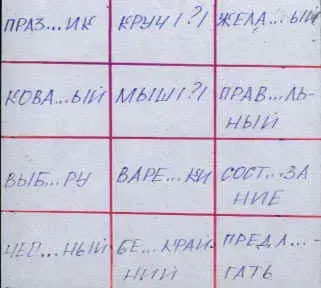 ПРАЗ...ИК КРУЧ(?) ЖЕЛА...ЫЙ
КОВА...ЫЙ МЫШ(?) ПРАВ...ЛЬ-
НЫЙ
ВЫБ...РУ ВАРЕ...КИ СОСТ...ЗА
НИЕ
ЧЕС...НЫЙ БЕ...КРАЙ- ПРЕДЛ...-
НИЙ ГАТЬ